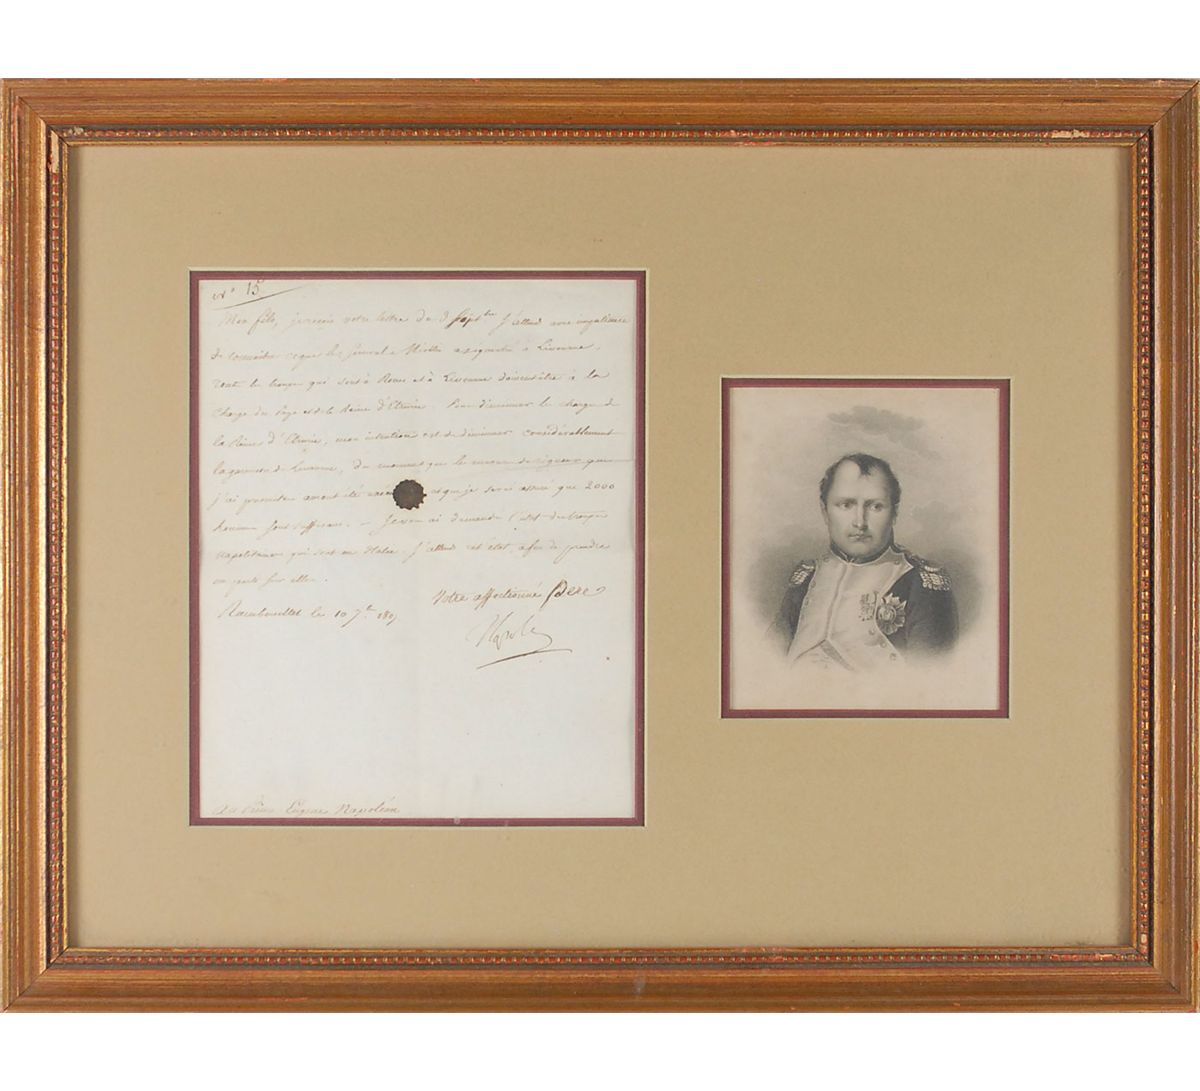 N° 15
Mon fils, je reçois votre lettre du 3 Sept.bre J'attend avec impatience
de connaître ce que le Général Miollis a à Livourne.
Toutes les troupes qui sont à Rome et à Livourne doivent être à la
charge du Pape et de la Reine d'Etrurie. Pour diminuer les charges de
la Reine d'Etrurie, mon intention est de diminuer considérablement
la garnison de Livourne, du moment que les mesures de rigueur que
j'ai prescrites auront été et que je serai assuré que 2000
hommes sont suffisans. - Je vous ai demandé l'état des troupes
napolitaines qui sont en Italie. J'attend cet état, afin de prendre
un parti sur elles.
Votre affectionné Pere
Rambouillet le 10 7.bre 1807
Napole
Au Prince Eugene Napoléon